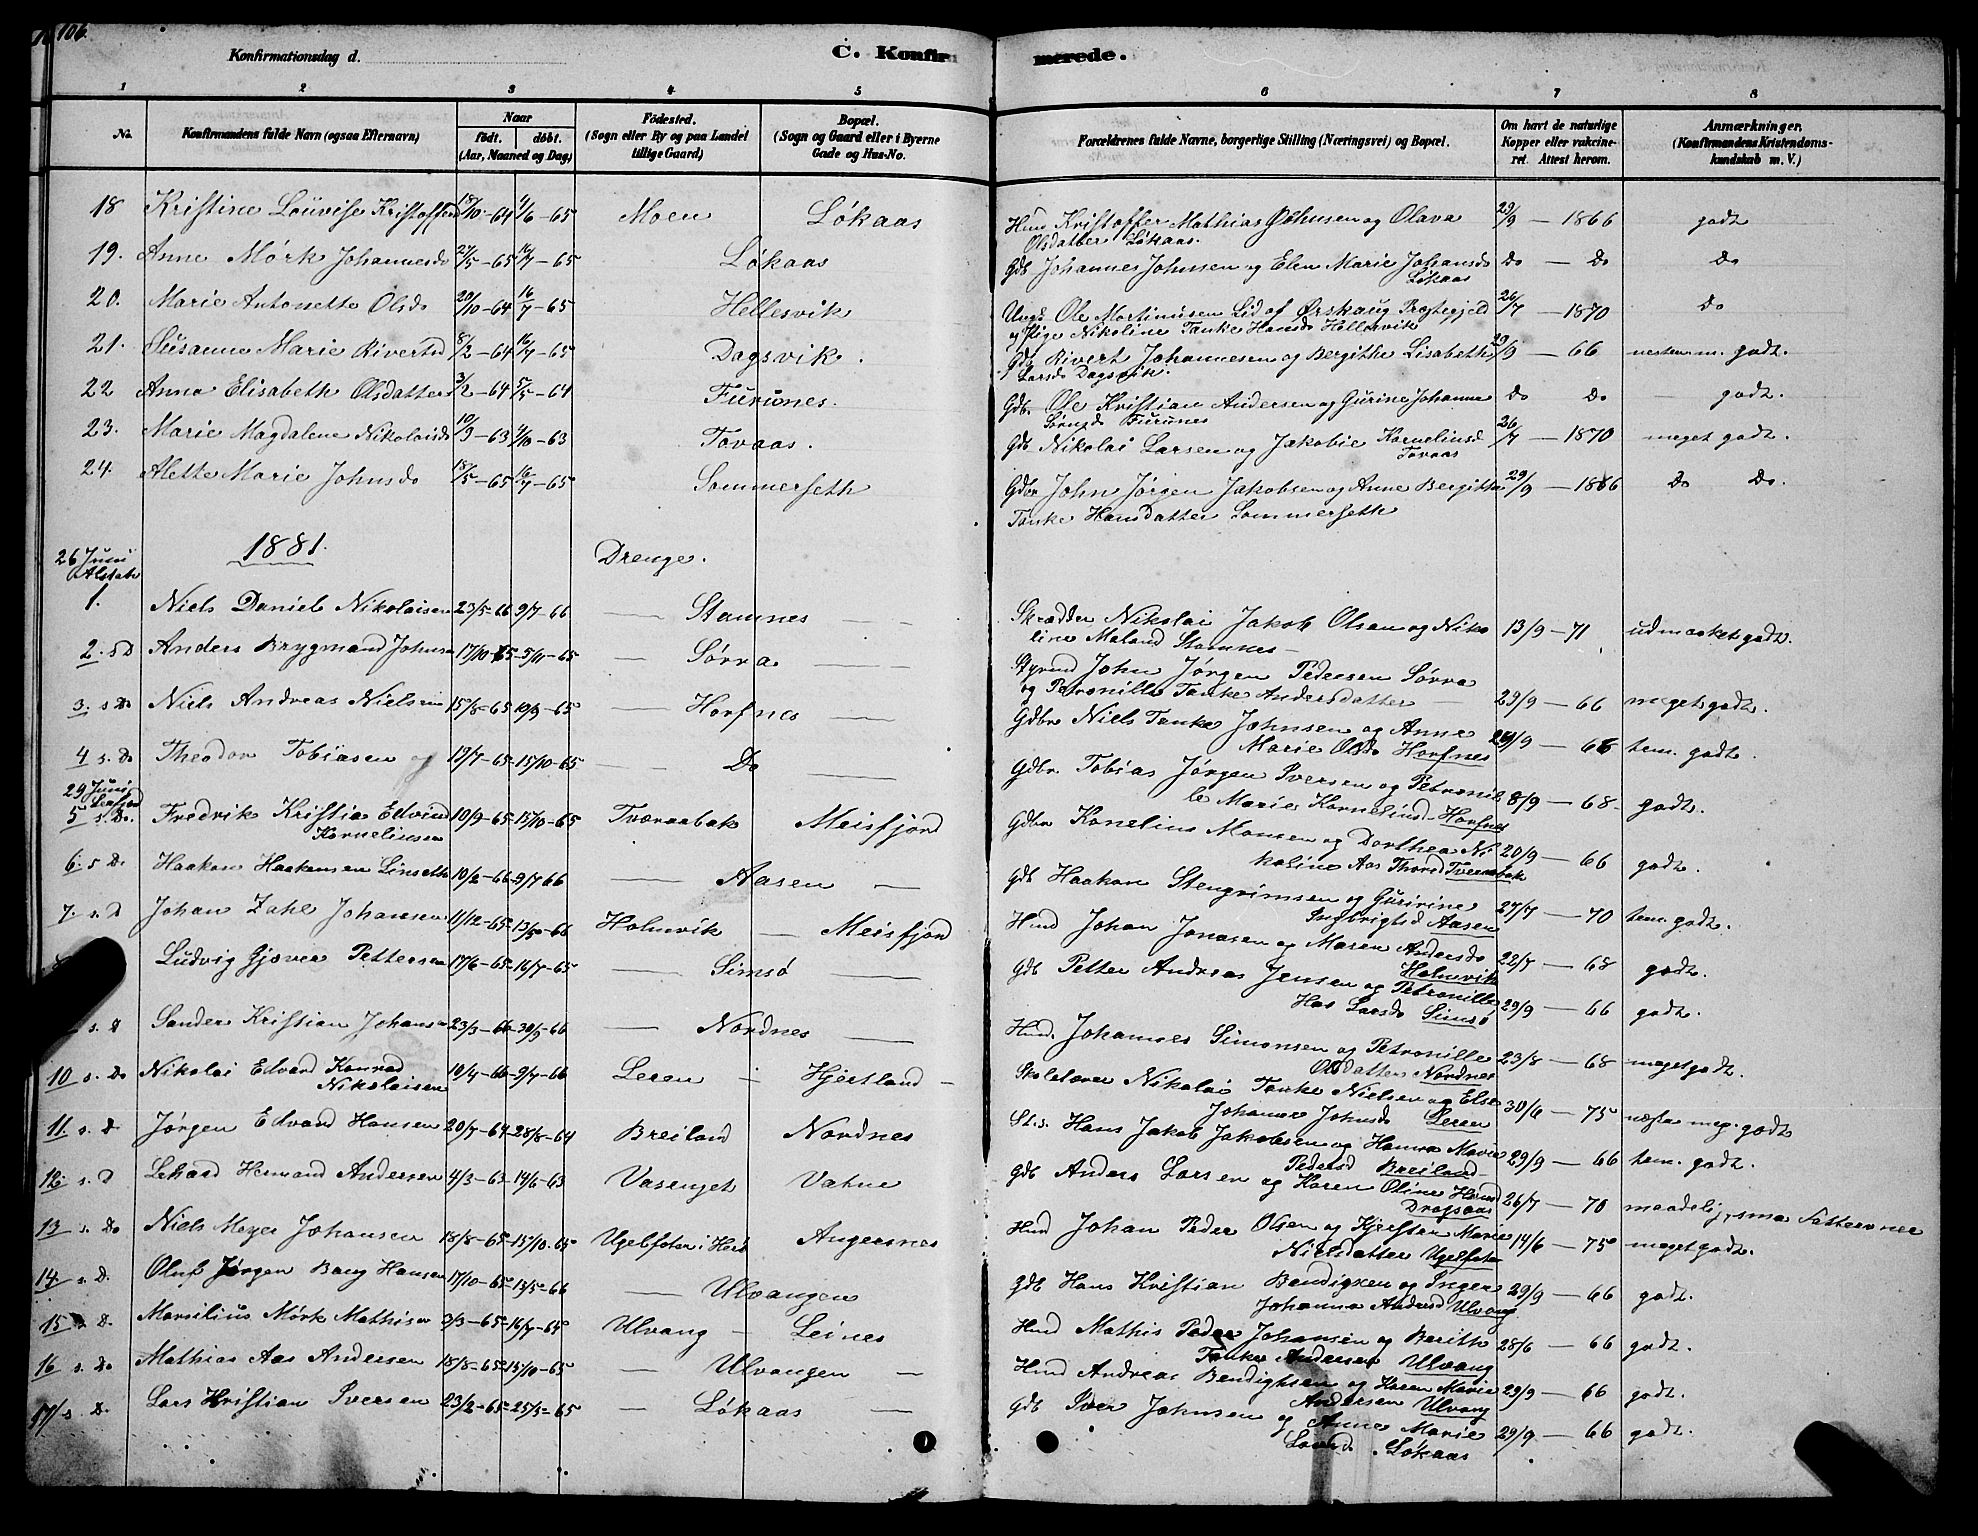 106
Konfirmationsdag d.
C. Konfirmerede.
1 2 3 4 5 6 7 8
No. Konfirmandens fulde Navn (ogsaa Efternavn) Naar født. døbt. (Aar, Maaned og Dag) Fødested. (Sogn eller By og paa Landet tillige Gaard) Bopæl. (Sogn og Gaard eller i Byerne Gade og Hus-No. Forældrenes fulde Navne, borgerlige Stilling (Næringsvei) og Bopæl. Om havt de naturlige Kopper eller vakcineret. Attest herom. Anmærkninger. (Konfirmandens Kristendomskundskab m. V.)
18 Kristine Louvise Kristoffersd 18/10-64 4/6-65 Moen Løkaas Hmd Kristoffer Mathias Johnsen og Olava 29/9 - 1866 godt
Olsdatter Løkaas.
19. Anne Mørk Johannesd 27/5-65 16/7-65 Løkaas Gdb Johannes Johnsen og Elen Marie Johansd Do - Do Do
Løkaas
20. Marie Antonette Olsd 20/10-64 16/7-65 Hellesvik Ungk Ole Martinusen Lid af Ørskaug Præstegjeld 26/7 - 1870 Do
og Pige Nikoline Tanke Hansd Hellesvik
21. Susanne Marie Rivertsd 8/2-64 16/7-65 Dagsvik. Gdb Rivert Johannesen og Bergithe Lisabeth 29/9 - 66 nesten m. godt.
Larsd Dagsvik.
22 Anna Elisabeth Olsdatter 3/2-64 5/5-64 Furunes. Gdb. Ole Kristian Andersen og Gurine Johanne Do Do - godt.
Sørensd Furunes
23. Marie Magdalene Nikolaisd 10/9-63 4/10-63 Tovaas. Gdb Nikolai Larsen og Jakobie Kornelinsd 26/7 - 1870 meget godt.
Tovaas
24. Alette Marie Johnsd 18/5-65 16/7-65 Sommerseth Gdbr John Jørgen Jakobsen og Anne Bergitte 29/9 - 1866 Do Do.
Tanke Hansdatter Sommerseth
26 Juni 1881. Drenge.
Alstah
1. Niels Daniel Nikolaisen 23/5-66 9/7-66 — Stamnes — Skrædder Nikolai Jakob Olsen og Niko 13/9 - 71 udmærket godt.
line Maland Stamnes -
2. s D Anders Brygmand Johns 17/10-65 5/11-65 — Sørra — Styrmd John Jørgen Pedersen Sørra
og Petronille Tanke Andersdatter — 29/9 - 66 meget godt.
3. s Do Niels Andreas Nielsen 15/8-65 10/9-65 — Horfnes — Gdbr Niels Tanke Johnsen og Anne
Marie Olsd Horfnes 29/9 - 66 tem. godt.
4 s. Do Theodor Tobiasen 19/7-65 15/10-65 — Do — Gdbr. Tobias Jørgen Iversen og Petronil
le Marie Kornelinsd Horfnes 8/9 - 68 godt.
29 Juni
5 s Do. Fredrik Kristia Edvind 10/9-65 15/10-65 Tværaabak Meisfjord Gdbr Kornelius Monsen og Dorthea Ni
Kornelinsen koline Aas Thorsd Tveraabak 20/9 - 66 godt.
6. s D. Haakon Haakensen Linseth 10/2-66 9/7 66 — Aasen — Gdb Haakon Stengrimsen og Guririne
Ingbrigtsd Aasen 27/7 - 70 tem. godt.
7. s. D Johan Zahl Johansen 11/12-65 13/5-66 Holmvik — Meisfjord Hmd Johan Jonasen og Maren Andersd
Holmevik 22/7 - 68 godt.
Ludvig Gjæver Pettersen 17/6-65 16/7-65 — Simsø — Gdb Petter Andreas Jensen og Petronille
Has Larsd Simsø 29/9 - 66 godt.
s. D Sander Kristian Johans 23/3-66 30/3-66 — Nordnes — Hmd. Johannes Simonsen og Petronille
Olsdatter Nordnes 23/8 - 68 meget godt.
10 s. Do Nikolai Edvard Konrad 19/4-66 9/7-66 Leren — Hjertland — Skolelærer Nikolai Tanke Nielsen og Else
Nikolaisen Johanne Johnsd Leren 30/6 - 75 næsten meg. godt
11. s. D Jørgen Edvard Hansen 20/7-64 28/8-64 Breiland Nordnes St.s. Hans Jakob Jakobsen og Hanna Marie
Pedersd Breiland 29/9 - 66 tem. godt.
12. s. D Lehard Hermand Andersen 4/3-63 14/6-63 Vasenget Vatne Gdb Anders Larsen og Karen Oline Hansd
Dragsaas 26/7 - 70 maadelig,
13 s. Do Niels Meyer Johansen 18/8-65 15/10-65 Ugelfoten i Herø Angersnes Hmd Johan Peder Olsen og Kjersten Marie
Nielsdatter Ugelfoten 14/6 - 75 meget godt.
14. s. D. Oluf Jørgen Bang Hansen 17/10-65 13/5-66 — Ulvangen Gdb Hans Kristian Bendigxen og Inger
Johanna Andersd Ulvang 29/9 - 66 godt.
15 s D. Marsilius Mørk Mathisen 3/3-65 16/7-65 Ulvang — Leines Hmd Mathis Peder Johansen og Berithe
Tanke Andersen Ulvang 28/6 - 66 godt.
16 s. Do Mathias Aas Andersen 18/8-65 15/10-65 — Ulvangen — Hmd Andreas Bendigtsen og Karen Marie
Andersen Ulvang 29/9 - 66 godt.
17/ s D. Lars Kristian Iversen 23/2-65 25/5-65 — Løkaas — Gdb Iver Johnsen og Anne Marie
Larsd. Løkaas 29/9 - 66 godt.